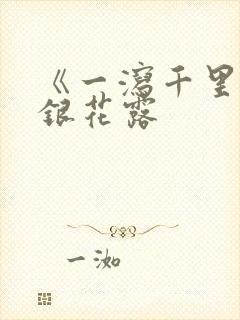 《一瀉千里
銀花露
一洳